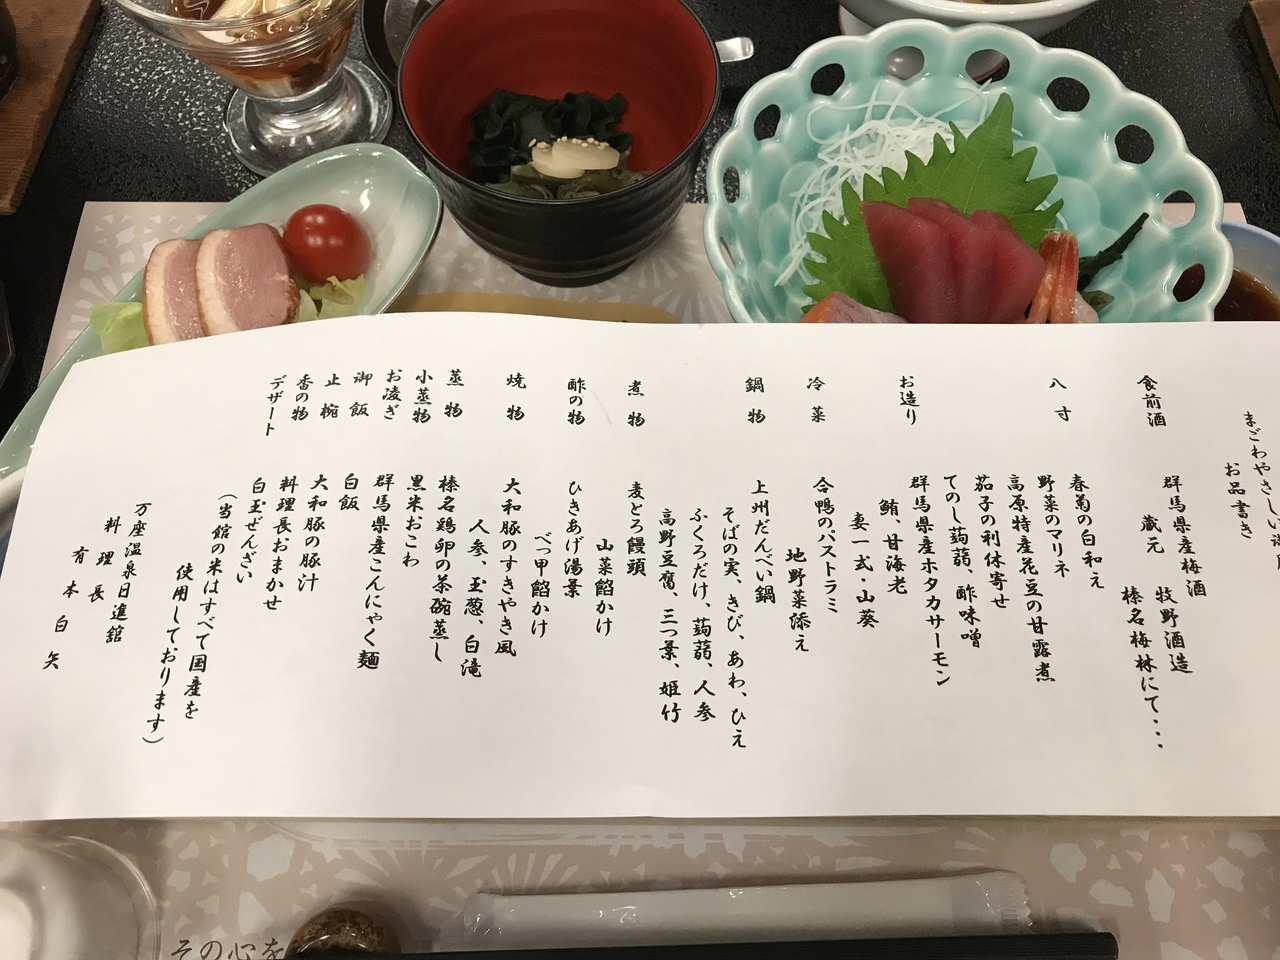 まごわやさしい
お品書き
食前酒
群馬県産梅酒
蔵元 牧野酒造
榛名梅林にて・・・
八寸
春菊の白和え
野菜のマリネ
高原特産花豆の甘露煮
茄子の利休寄せ
てのし蒟蒻、酢味噌
お造り
群馬県産ホタカサーモン
鮪、甘海老
妻一式・山葵
冷菜
合鴨のパストラミ
地野菜添え
鍋物
上州だんべい鍋
そばの実、きび、あわ、ひえ
ふくろだけ、蒟蒻、人参
高野豆腐、三つ葉、姫竹
煮物
麦とろ饅頭
山菜餡かけ
酢の物
ひきあげ湯葉
べっ甲餡かけ
焼物
大和豚のすきやき風
人参、玉葱、白滝
蒸物
榛名鶏卵の茶碗蒸し
小蒸物
黒米おこわ
お凌ぎ
群馬県産こんにゃく麺
御飯
白飯
止椀
大和豚の豚汁
香の物
料理長おまかせ
デザート
白玉ぜんざい
(当館の米はすべて国産を
使用しております)
万座温泉日進舘
料理長
有本白矢
その心を